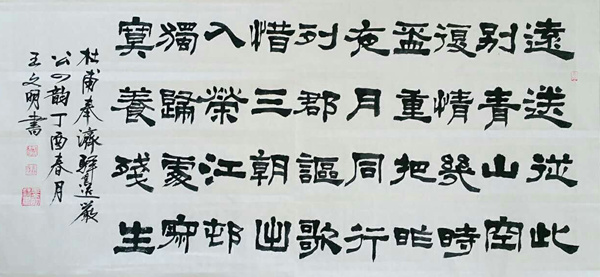 遠送從此
別青山空
復情幾時
盃重把昨
夜月同行
列郡謳歌
惜三朝出
入榮江邨
獨歸處寂
寞養殘生
杜甫奉濟驛重送嚴
公四韵丁酉春月
王文明書